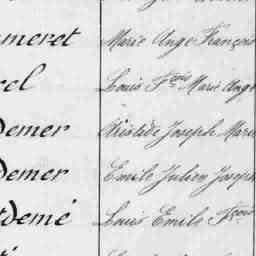 meret Marie Ange François
cel Louis Fçois Marie Ange
Demer Aristide Joseph Marie
Demer Emile Julien Joseph
demé Louis Emile Fçois